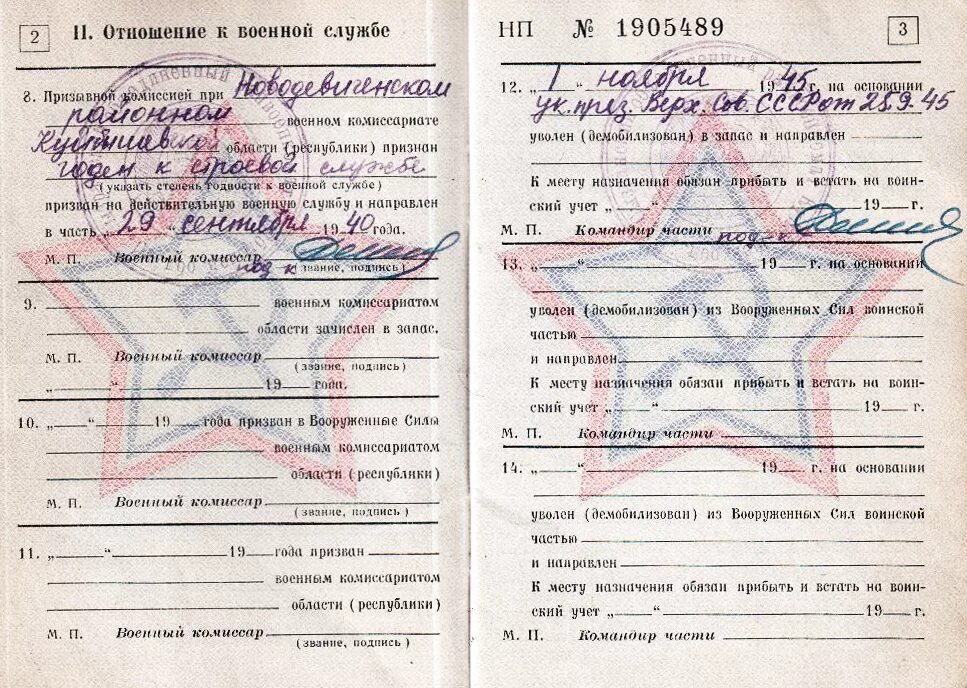 2
II. Отношение к военной службе
8. Призывной комиссией при Новодевиченском
районном военном комиссариате
Куйбышевской области (республики) признан
годен к строевой службе
(указать степень годности к военной службе)
призван на действительную военную службу и направлен
в часть „29“ сентября 1940 года.
М. П. Военный комиссар подп-к
(звание, подпись)
9. военным комиссариатом
области зачислен в запас.
М. П. Военный комиссар
(звание, подпись)
„ “ 19 года.
10. „ “ 19 года призван в Вооруженные Силы
военным комиссариатом
области (республики)
М. П. Военный комиссар
(звание, подпись)
11. „ “ 19 года призван
военным комиссариатом
области (республики)
М. П. Военный комиссар
(звание, подпись)
НП № 1905489
3
12. „1“ ноября 1945 г. на основании
ук. през. Верх. Сов. СССР от 25.9.45
уволен (демобилизован) в запас и направлен
К месту назначения обязан прибыть и встать на воин-
ский учет „ “ 19 г.
М. П. Командир части подп-к
13. „ “ 19 г. на основании
уволен (демобилизован) из Вооруженных Сил воинской
частью
и направлен
К месту назначения обязан прибыть и встать на воин-
ский учет „ “ 19 г.
М. П. Командир части
14. „ “ 19 г. на основании
уволен (демобилизован) из Вооруженных Сил воинской
частью
и направлен
К месту назначения обязан прибыть и встать на воин-
ский учет „ “ 19 г.
М. П. Командир части